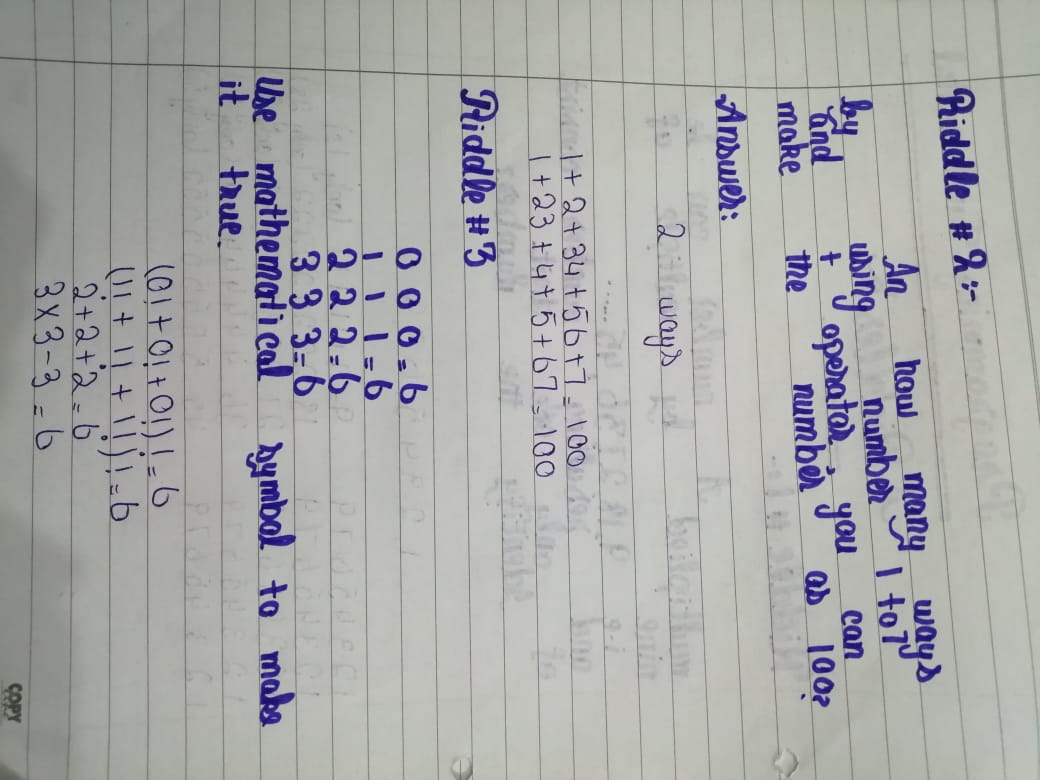 Riddle # 2:-
An how many ways
by using number 1 to 7
and + operator, you can
make the number as 100?
Answer:
2 ways
1 + 2 + 34 + 56 + 7 = 100
1 + 23 + 4 + 5 + 67 = 100
Riddle # 3
0 0 0 = 6
1 1 1 = 6
2 2 2 = 6
3 3 3 = 6
Use mathematical symbol to make
it true.
(0! + 0! + 0!)! = 6
(1! + 1! + 1!)! = 6
2 + 2 + 2 = 6
3 x 3 - 3 = 6
COPY